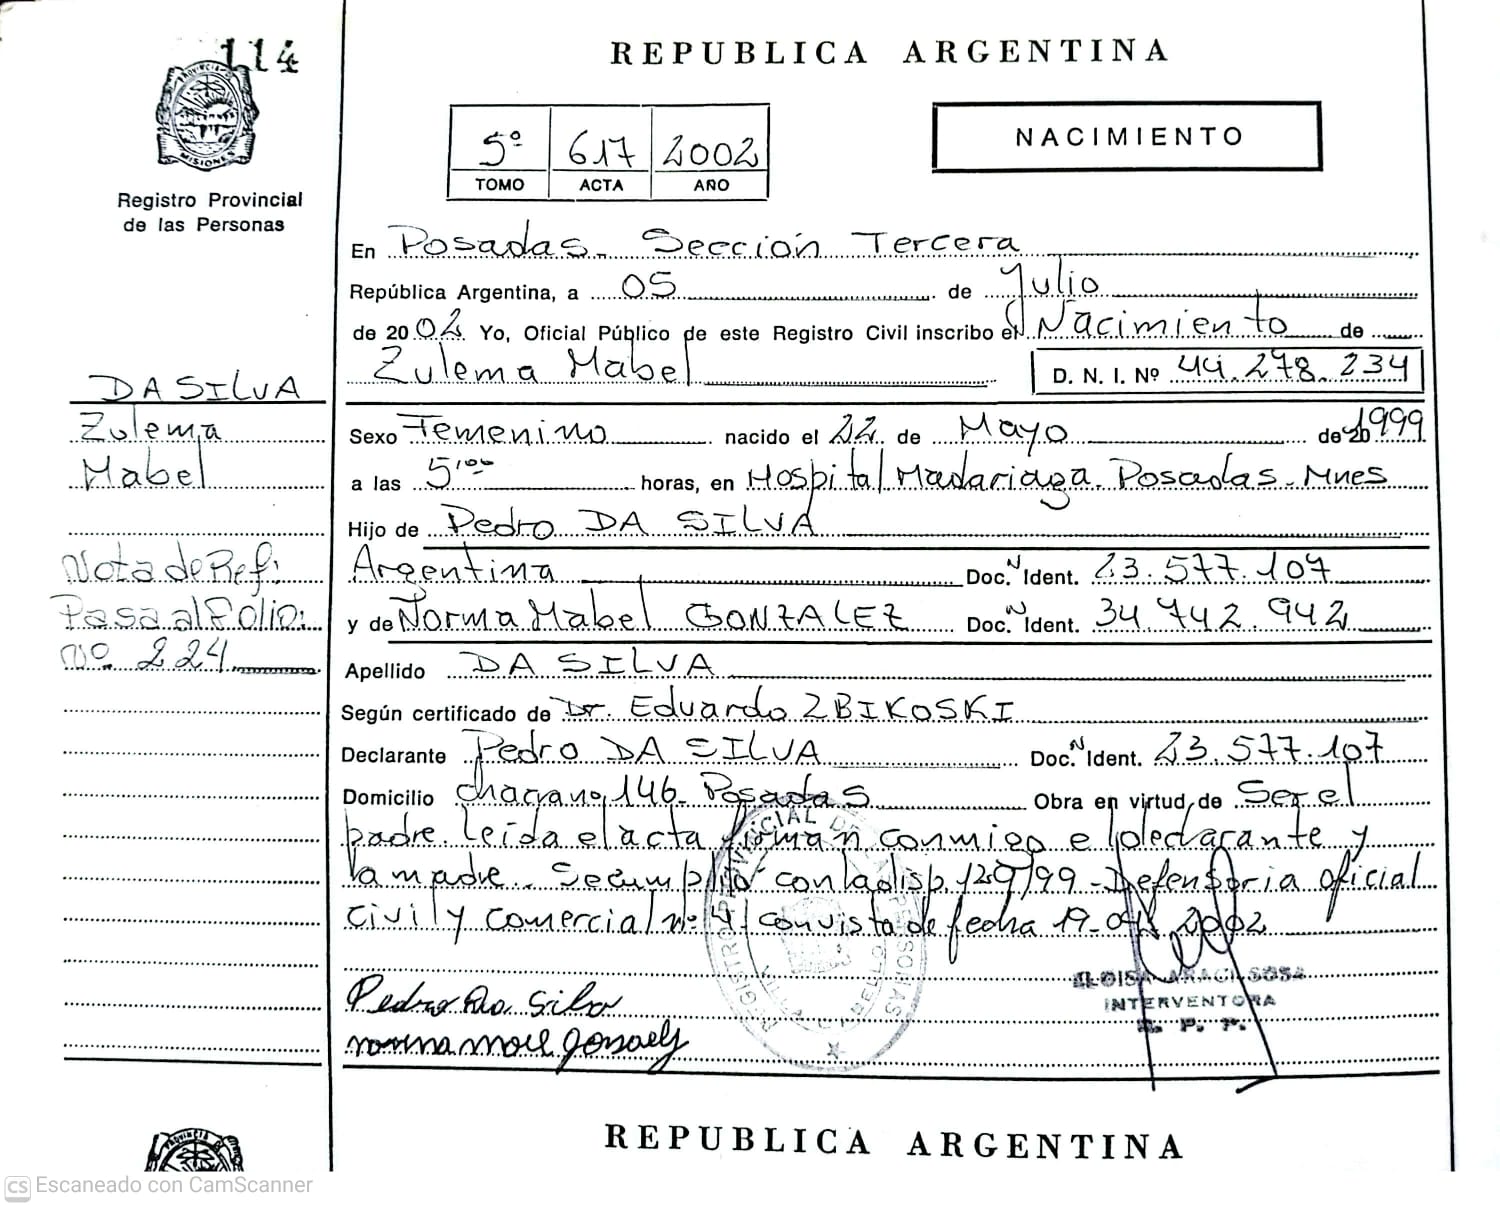 114
PROVINCIA DE
MISIONES
Registro Provincial
de las Personas
DA SILVA
Zulema
Mabel
Nota de Ref:
Pasa al Folio:
Nº 224
REPUBLICA ARGENTINA
5º 617 2002
TOMO ACTA AÑO
NACIMIENTO
En Posadas. Sección Tercera
República Argentina, a 05 de Julio
de 2002 Yo, Oficial Público de este Registro Civil inscribo el Nacimiento de
Zulema Mabel D. N. I. Nº 44.278.234
Sexo Femenino nacido el 22 de Mayo de 20 1999
a las 5'00 horas, en Hospital Madariaga. Posadas - Mnes
Hijo de Pedro DA SILVA
Argentina Doc. N Ident. 23.577.107
y de Norma Mabel GONZALEZ Doc. N Ident. 34.742.942
Apellido DA SILVA
Según certificado de Dr. Eduardo ZBIKOSKI
Declarante Pedro DA SILVA Doc. N Ident. 23.577.107
Domicilio chacra nº 146 - Posadas Obra en virtud de Ser el
padre. Leída el acta firman conmigo el declarante y
la madre. Se cumplió con la disp. 129/99 - Defensoria oficial
civil y comercial nº 4 con vista de fecha 19-04-2002
Pedro Da Silva
ELOISA ARACI SOSA
INTERVENTORA
R. P. P.
REPUBLICA ARGENTINA
PROVINCIA
CS Escaneado con CamScanner